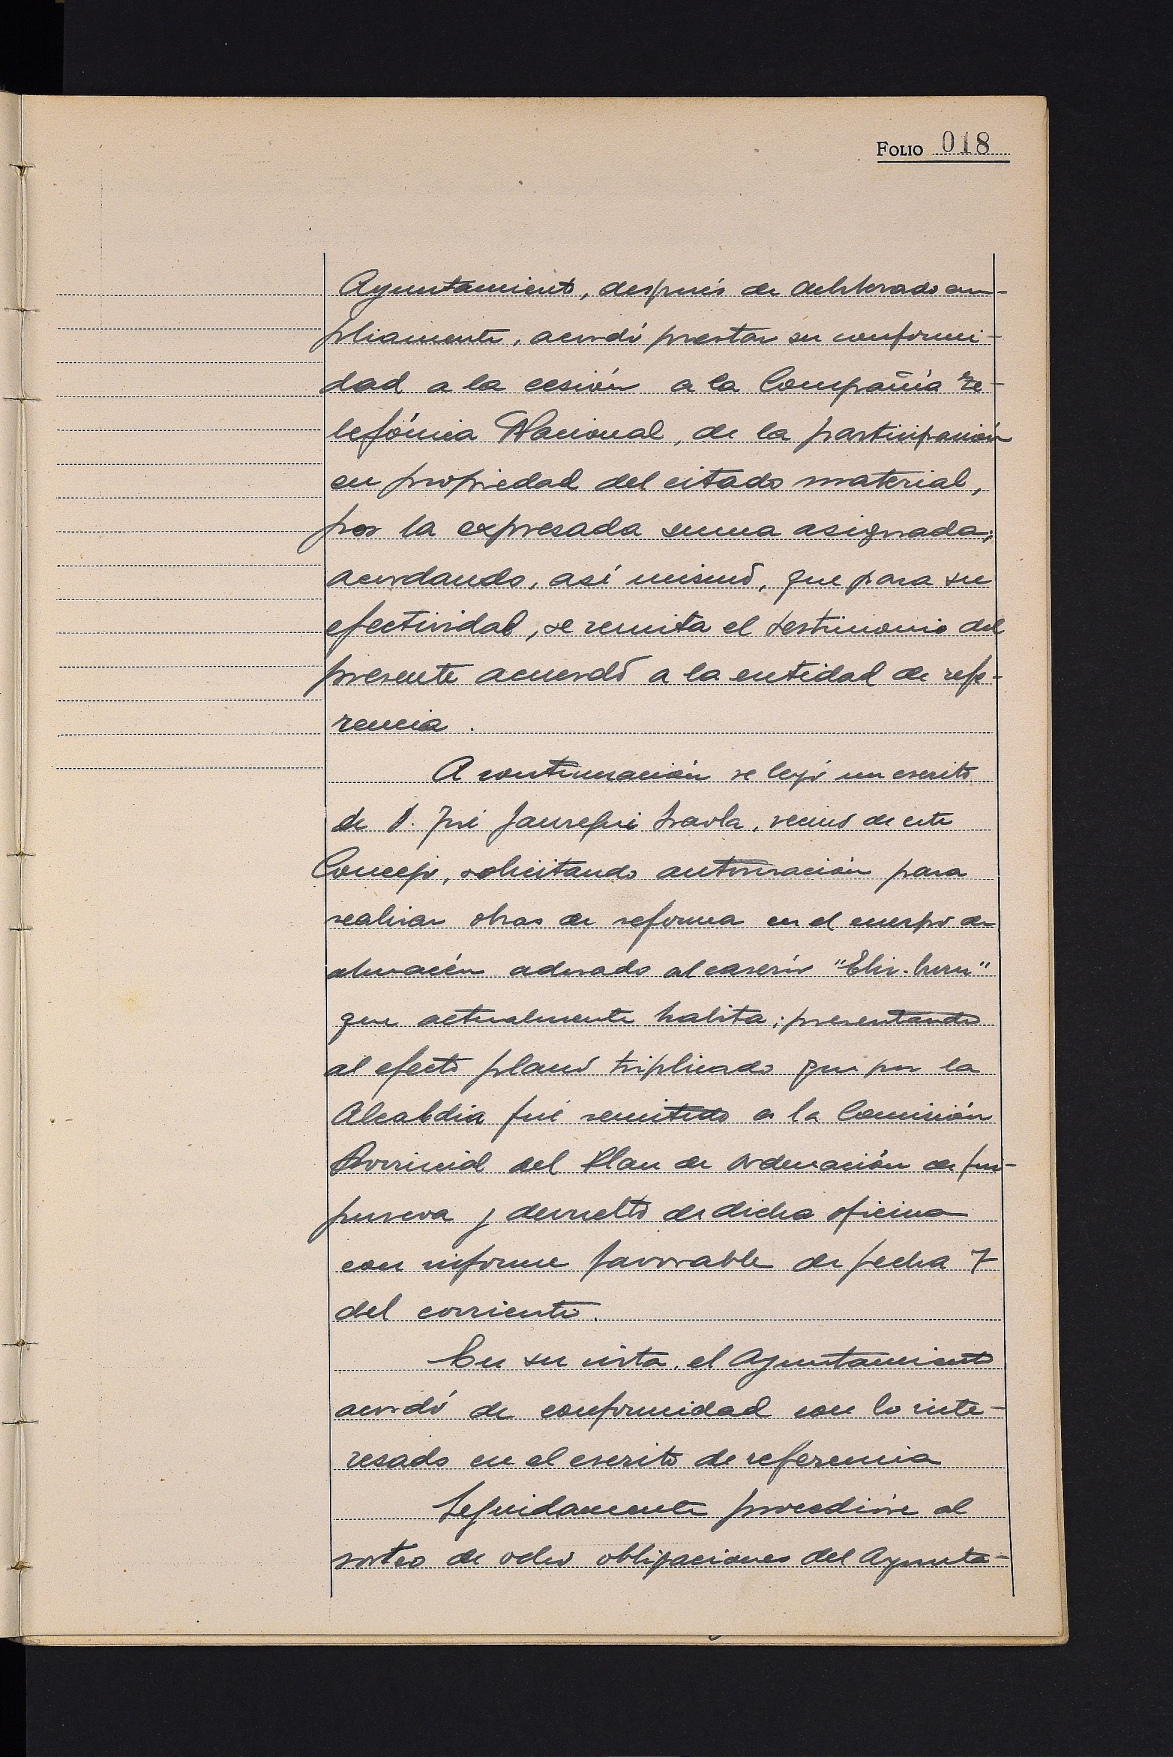 FOLIO 018
Ayuntamiento, después de deliberado am-
pliamente, acordó prestar su conformi-
dad a la cesión a la Compañía Te-
lefónica Nacional, de la participación
en propiedad del citado material,
por la expresada suma asignada;
acordando, así mismo, que para su
efectividad, se remita el testimonio del
presente acuerdo a la entidad de refe-
rencia.
A continuación se leyó un escrito
de D. José Jauregui, vecino de este
Concejo, solicitando autorización para
realizar obras de reforma en el cuerpo de
adosado al caserío
que actualmente habita; presentando
al efecto plano triplicado que por la
Alcaldia fué remitido a la Comisión
Provincial del Plan de Ordenación de Gui-
puzcoa y devuelto de dicha oficina
con informe favorable de fecha 7
del corriente.
En su vista, el Ayuntamiento
acordó de conformidad con lo inte-
resado en el escrito de referencia
Seguidamente procedióse al
sorteo de ocho obligaciones del Ayunta-